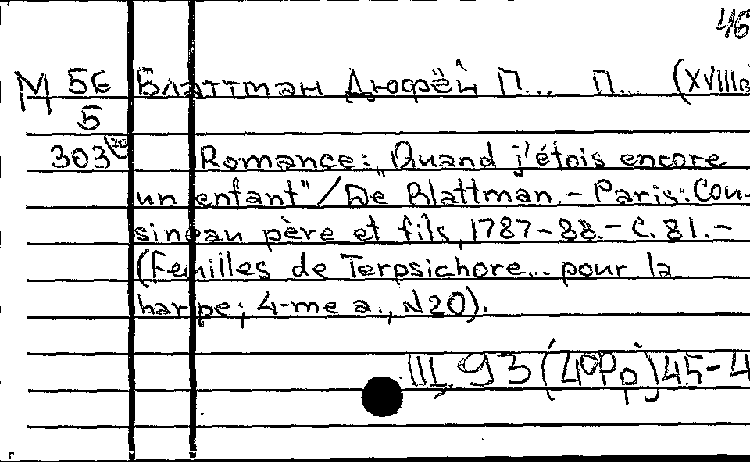 46
М 56 Блаттман Дюфей П... П... (XVIIIв
5
303 Romance: "Quand j'étois encore
un enfant" / De Blattman. - Paris: Cou-
sineau père et fils, 1787-88. - C. 81. -
(Feuilles de Terpsichore... pour la
harpe; 4-me a., N20).
III, 93 45-4